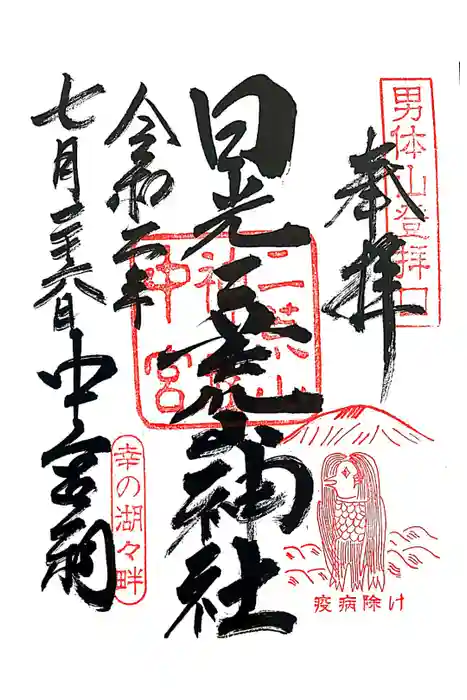 男体山登拝口
奉拝
日光二荒山神社
二荒山
神社中
宮
令和二年
七月二十六日
中宮祠
幸の湖々畔
疫病除け